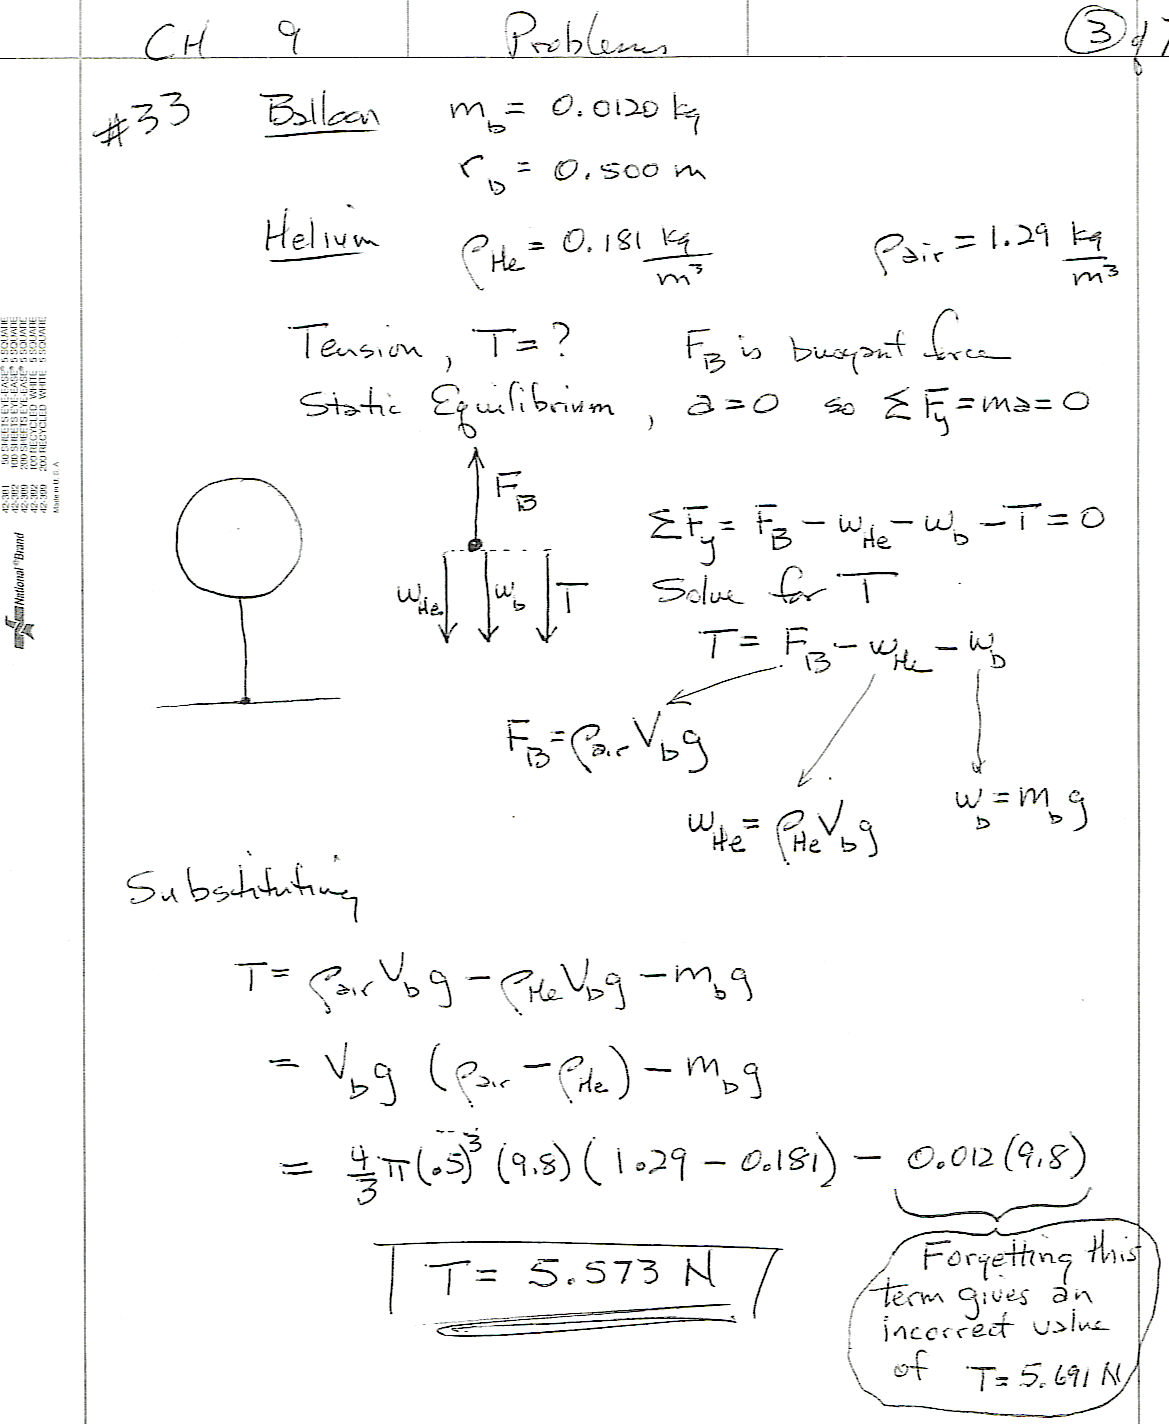 CH 9 Problems 3 of 7
#33 Balloon m_b = 0.0120 kg
r_b = 0.500 m
Helium ρ_He = 0.181 kg/m³ ρ_air = 1.29 kg/m³
Tension, T = ? F_B is buoyant force
Static Equilibrium, a = 0 so ΣF_y = ma = 0
F_B
ΣF_y = F_B - w_He - w_b - T = 0
w_He w_b T
Solve for T
T = F_B - w_He - w_b
F_B = ρ_air V_b g
w_He = ρ_He V_b g
w_b = m_b g
Substituting
T = ρ_air V_b g - ρ_He V_b g - m_b g
= V_b g (ρ_air - ρ_He) - m_b g
= 4/3 π (.5)³ (9.8) (1.29 - 0.181) - 0.012 (9.8)
T = 5.573 N
Forgetting this
term gives an
incorrect value
of T = 5.691 N
42-381 50 SHEETS EYE-EASE® 5 SQUARE
42-382 100 SHEETS EYE-EASE® 5 SQUARE
42-389 200 SHEETS EYE-EASE® 5 SQUARE
42-392 100 RECYCLED WHITE 5 SQUARE
42-399 200 RECYCLED WHITE 5 SQUARE
Made in U.S.A.
National®Brand